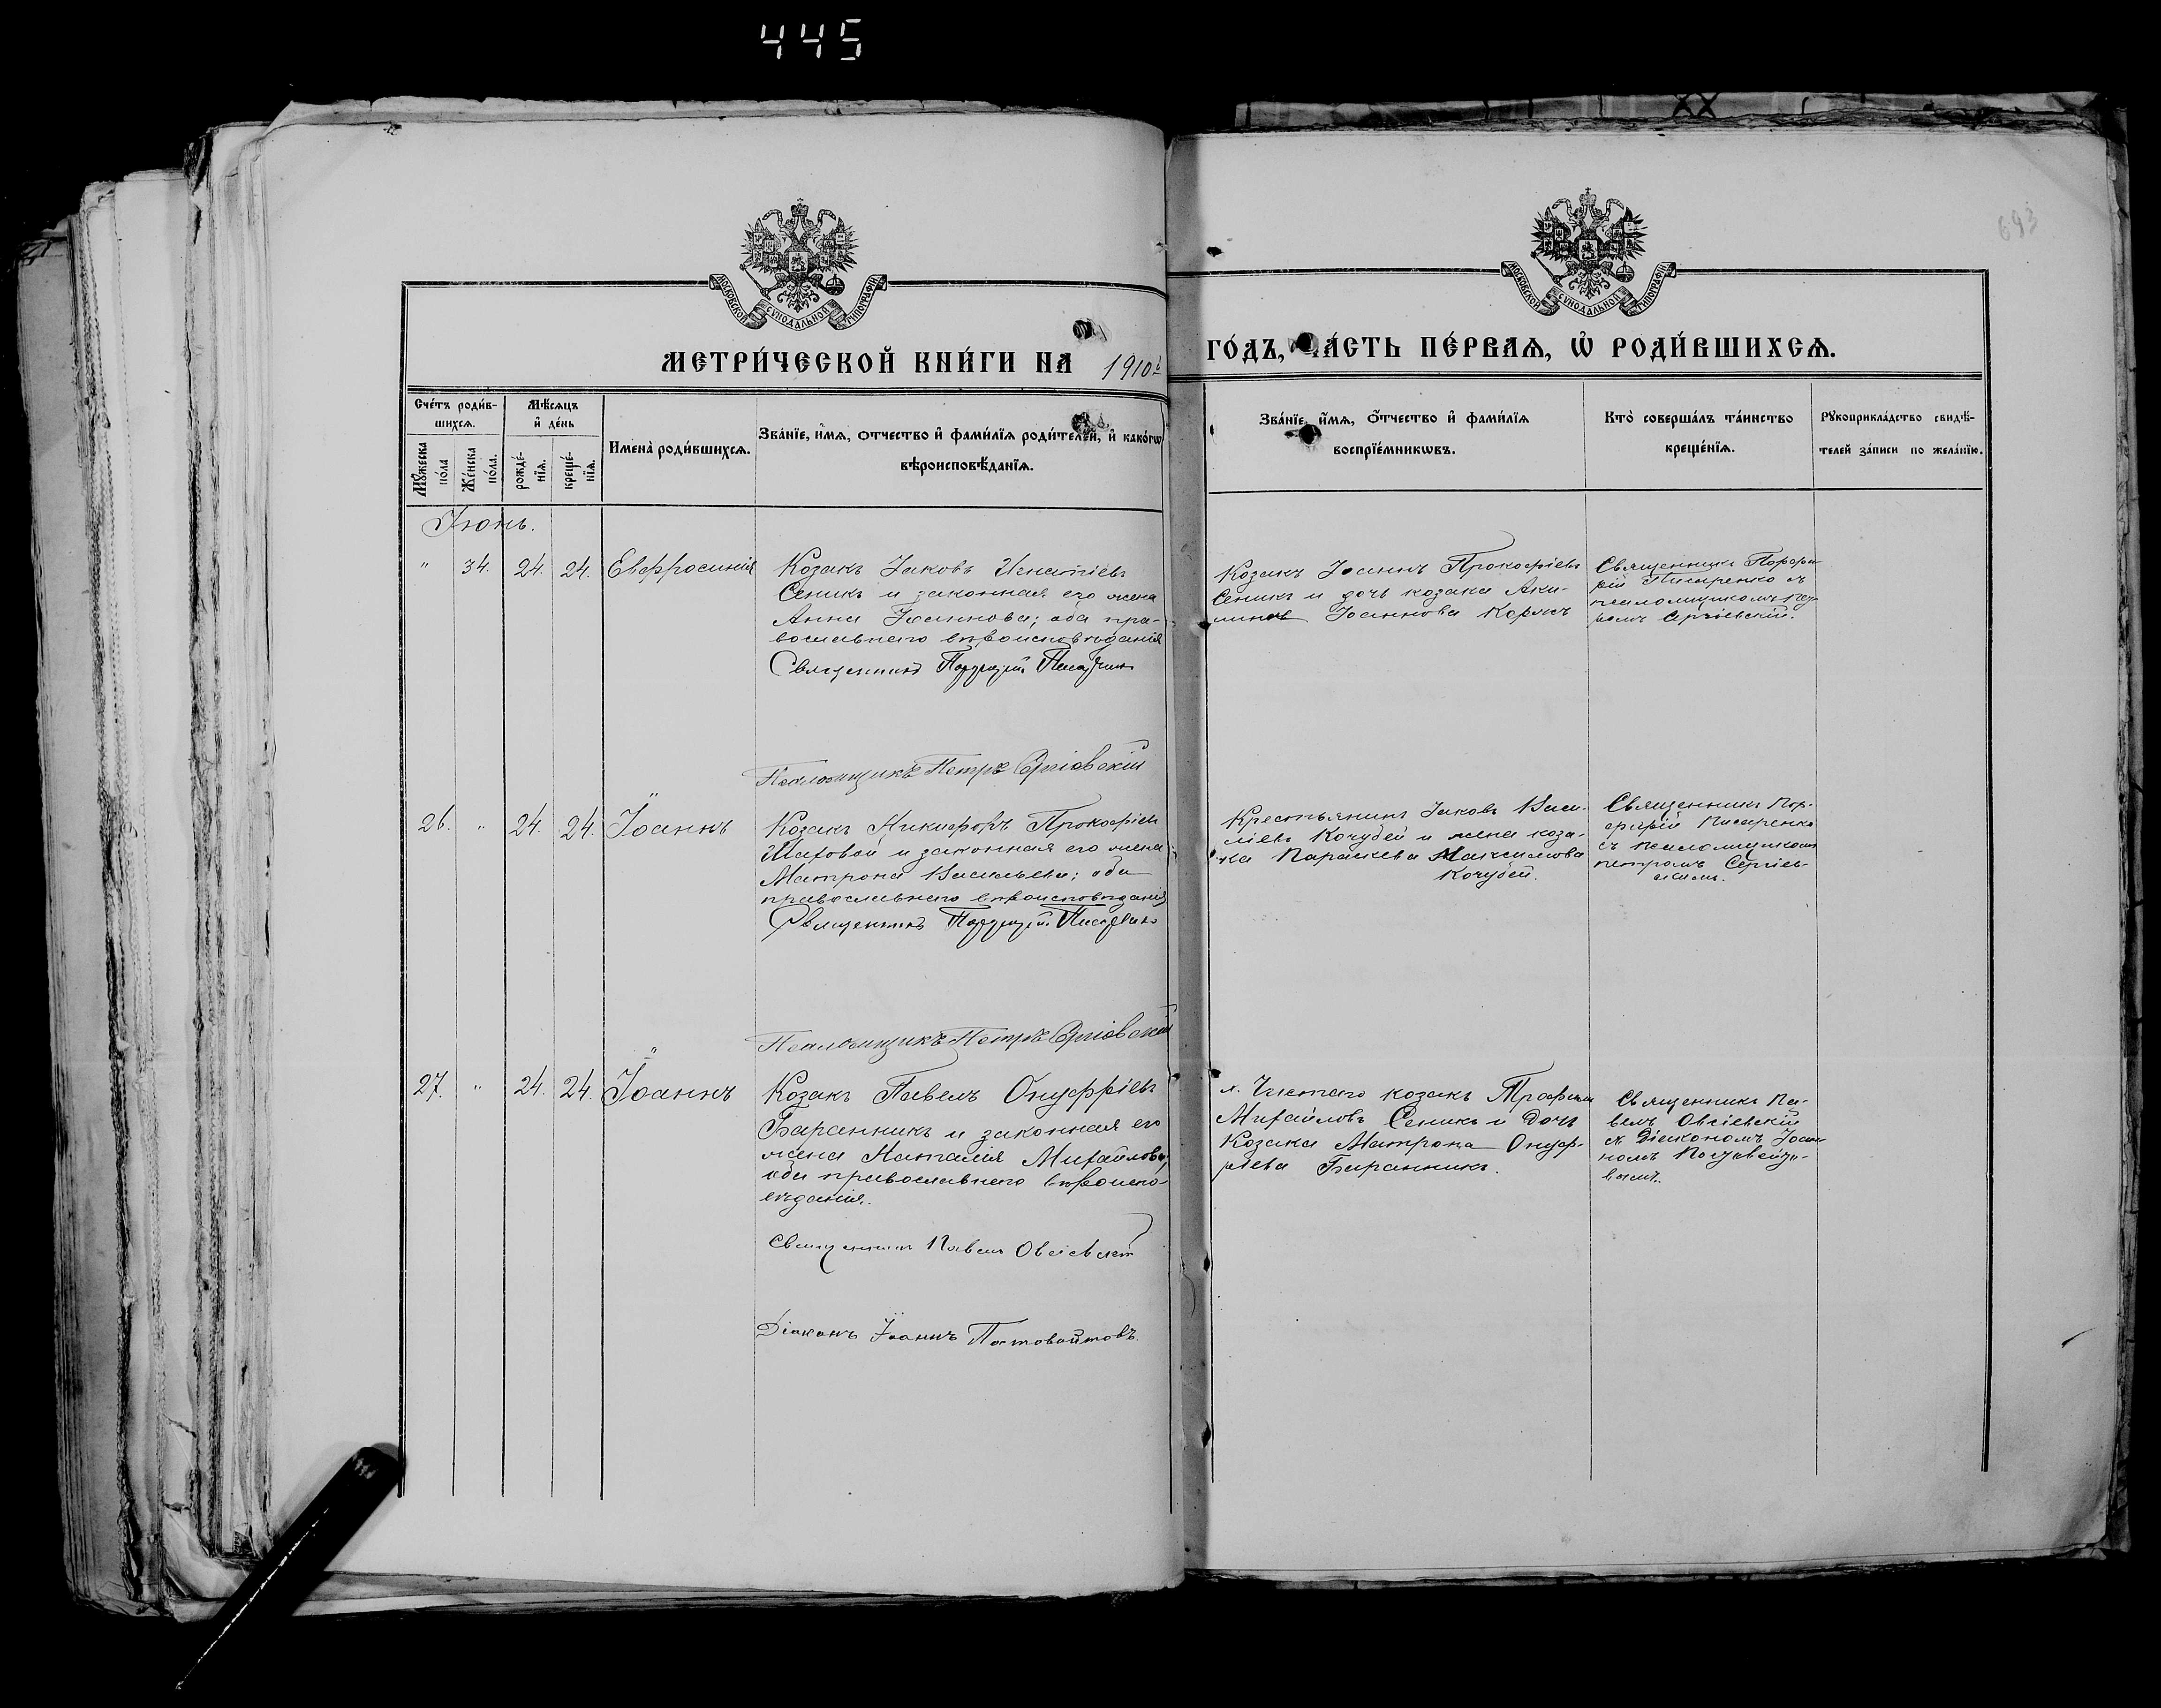 445
693
МОСКОВСКОЙ СУНОДАЛЬНОЙ ТИПОГРАФІИ
МОСКОВСКОЙ СУНОДАЛЬНОЙ ТИПОГРАФІИ
МЕТРИ́ЧЕСКОЙ КНИ́ГИ НА 1910й ГО́ДЪ, ЧА́СТЬ ПЕ́РВАѦ, Ѡ РОДИ́ВШИХСѦ.
Сче́тъ роди́в-
шихсѧ.
Мꙋжеска
по́ла
Же́нска
по́ла.
Мѣ́сѧцъ
и҆ де́нь
рожде́-
нїѧ.
креще́-
нїѧ.
Имена̀ роди́вшихсѧ.
Зва́нїе, и҆́мѧ, о҆́тчество и҆ фами́лїѧ роди́телей, и҆ како́гѡ
вѣроисповѣ́данїѧ.
Зва́нїе, и҆́мѧ, о҆́тчество и҆ фами́лїѧ
воспрїе́мникѡвъ.
Кто̀ соверша́лъ та́инство
креще́нїѧ.
Рꙋкоприкла́дство свидѣ́-
телей за́писи по жела́нїю.
Іюнь.
" 34. 24. 24. Евфросинія
Козакъ Іаковъ Игнатіевъ
Сеникъ и законная его жена
Анна Іоаннова; оба пра-
вославнаго вѣроисповѣданія
Священникъ Порфирій Писаренко
Псаломщикъ Петръ Сергіевскій
Козакъ Іоаннъ Прокофіевъ
Сеникъ и дочь козака Аки-
лина Іоаннова Коржъ
Священникъ Порфи-
рій Писаренко съ
псаломщикомъ Пет-
ромъ Сергіевскій.
26. " 24. 24. Іоаннъ
Козакъ Никифоръ Прокофіевъ
Шаховой и законная его жена
Матрона Васильева; оба
православнаго вѣроисповѣданія
Священникъ Порфирій Писаренко
Псаломщикъ Петръ Сергіевскій
Крестьянинъ Іаковъ Васи-
ліевъ Кочубей и жена коза-
ка Параскева Максимова
Кочубей.
Священникъ Пор-
фирій Писаренко
съ псаломщикомъ
Петромъ Сергіев-
скимъ.
27. " 24. 24. Іоаннъ
Козакъ Павелъ Онуфріевъ
Баранникъ и законная его
жена Наталія Михайлова;
оба православнаго вѣроиспо-
вѣданія.
Священникъ Павелъ Овсіевскій
Діаконъ Іоаннъ Постовойтовъ.
козакъ Трофимъ
Михайловъ Сеникъ и дочь
Козака Матрона Онуф-
ріева Баранникъ.
Священникъ Па-
велъ Овсіевскій
съ Діакономъ Іоан-
номъ Постовойто-
вымъ.